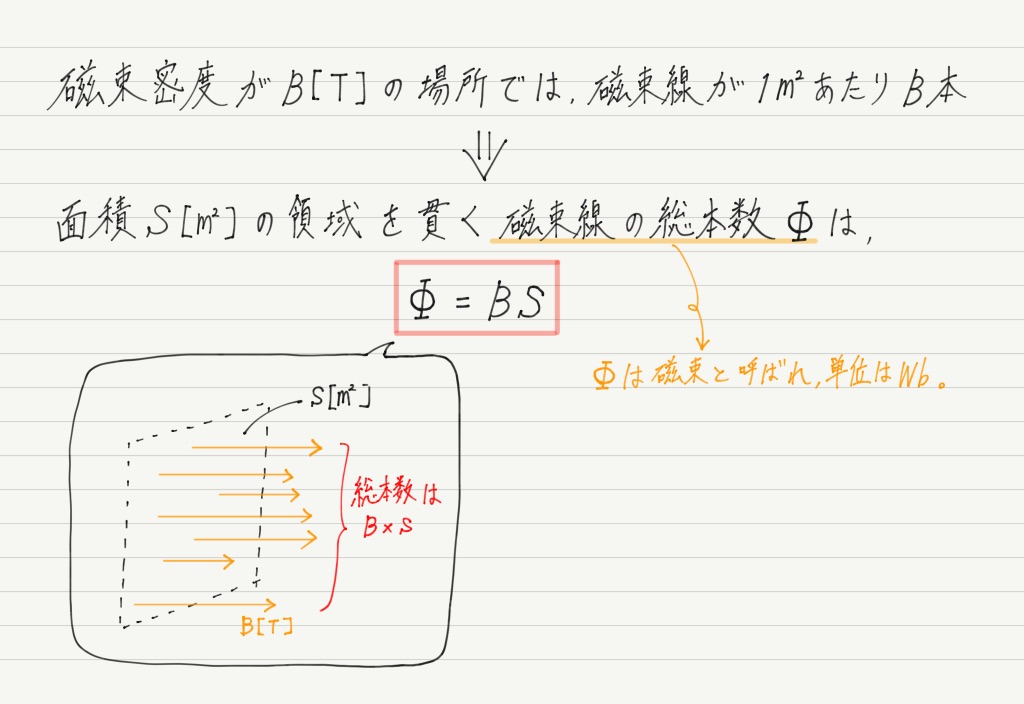 磁束密度がB[T]の場所では,磁束線が1m²あたりB本
⇓
面積S[m²]の領域を貫く磁束線の総本数Φは,
Φ=BS
Φは磁束と呼ばれ,単位はWb。
S[m²]
総本数は
B×S
B[T]